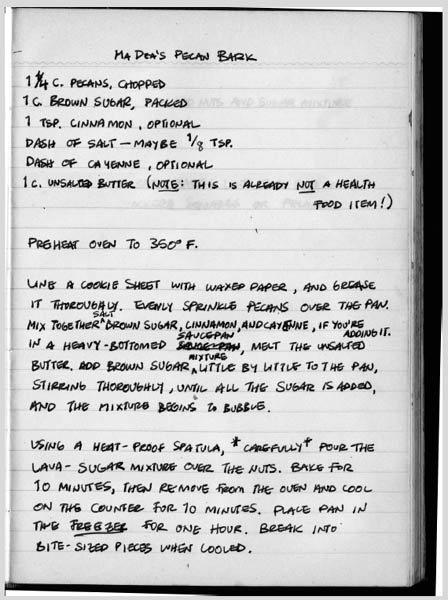 MA DEA'S PECAN BARK
1 1/4 C. PECANS, CHOPPED
1 C. BROWN SUGAR, PACKED
1 TSP. CINNAMON, OPTIONAL
DASH OF SALT — MAYBE 1/8 TSP.
DASH OF CAYENNE, OPTIONAL
1 C. UNSALTED BUTTER (NOTE: THIS IS ALREADY NOT A HEALTH
FOOD ITEM!)
PREHEAT OVEN TO 350° F.
LINE A COOKIE SHEET WITH WAXED PAPER, AND GREASE
IT THOROUGHLY. EVENLY SPRINKLE PECANS OVER THE PAN.
MIX TOGETHER SALT BROWN SUGAR, CINNAMON, AND CAYENNE, IF YOU'RE
ADDING IT.
IN A HEAVY-BOTTOMED SAUCEPAN, MELT THE UNSALTED
BUTTER. ADD BROWN SUGAR MIXTURE LITTLE BY LITTLE TO THE PAN,
STIRRING THOROUGHLY, UNTIL ALL THE SUGAR IS ADDED,
AND THE MIXTURE BEGINS TO BUBBLE.
USING A HEAT-PROOF SPATULA, *CAREFULLY* POUR THE
LAVA-SUGAR MIXTURE OVER THE NUTS. BAKE FOR
10 MINUTES, THEN REMOVE FROM THE OVEN AND COOL
ON THE COUNTER FOR 10 MINUTES. PLACE PAN IN
THE FREEZER FOR ONE HOUR. BREAK INTO
BITE-SIZED PIECES WHEN COOLED.